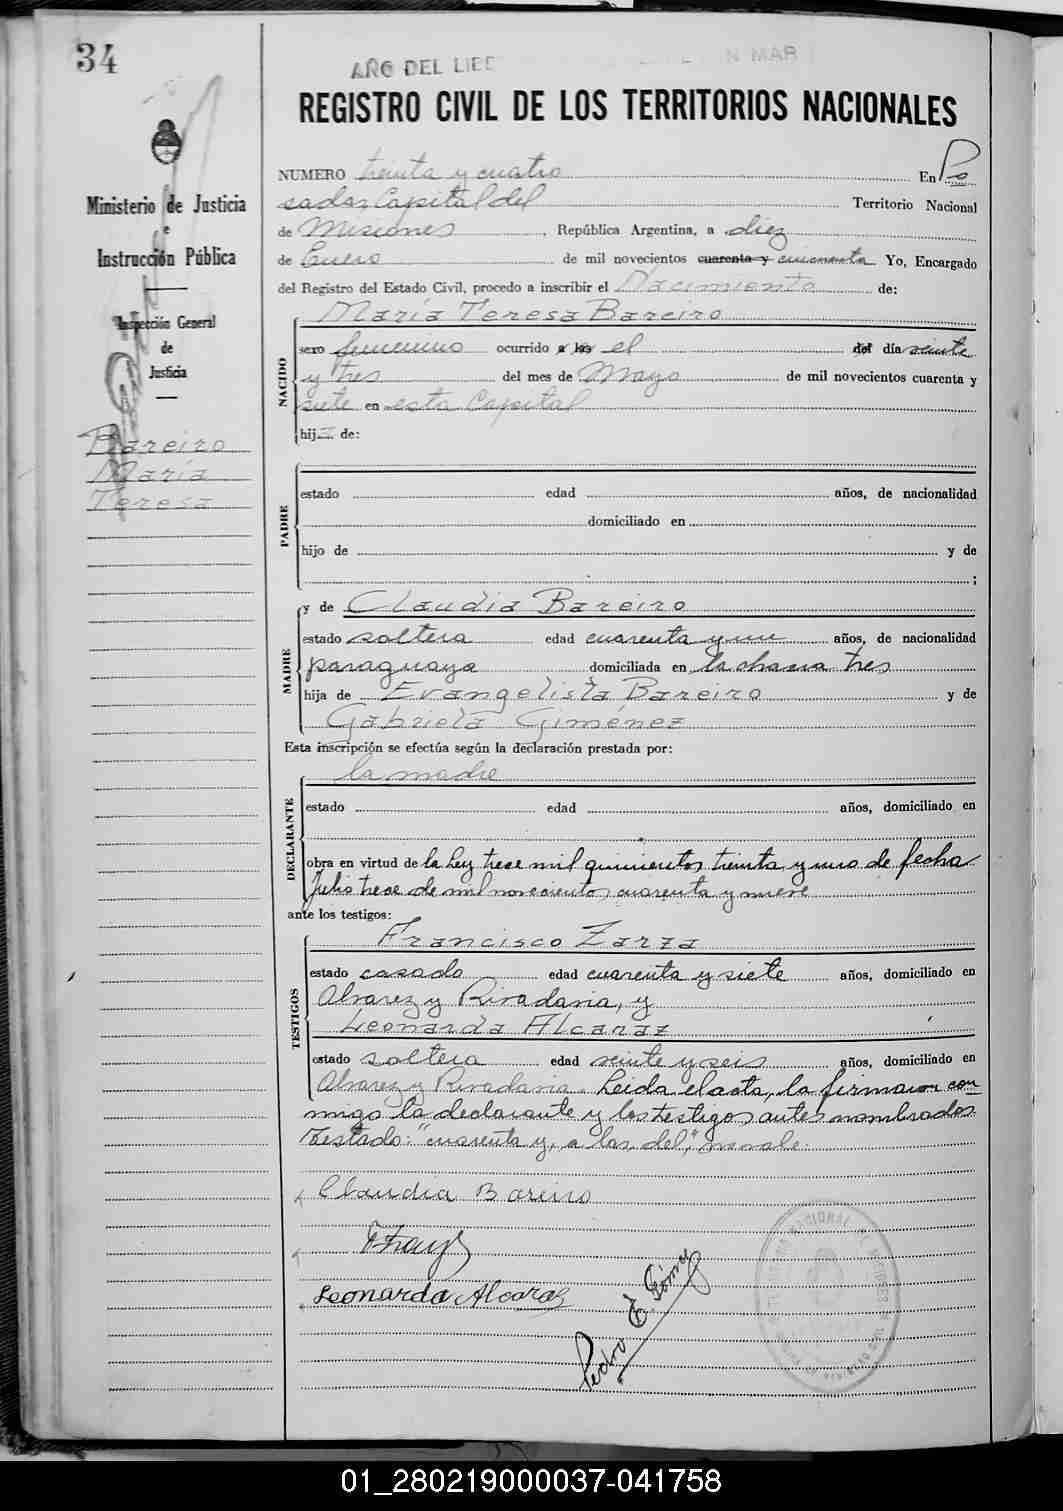 34
AÑO DEL LIBE N MAR
REGISTRO CIVIL DE LOS TERRITORIOS NACIONALES
Ministerio de Justicia
e
Instrucción Pública
Inspección General
de
Justicia
Bareiro
María
Teresa
NUMERO treinta y cuatro En Po
sadas Capital del Territorio Nacional
de Misiones, República Argentina, a diez
de Enero de mil novecientos cuarenta y cincuenta Yo, Encargado
del Registro del Estado Civil, procedo a inscribir el Nacimiento de:
NACIDO
María Teresa Bareiro
sexo femenino ocurrido a las el del día veinte
y tres del mes de Mayo de mil novecientos cuarenta y
siete en esta Capital
hija de:
PADRE
estado edad años, de nacionalidad
domiciliado en
hijo de y de
;
MADRE
y de Claudia Bareiro
estado soltera edad cuarenta y un años, de nacionalidad
paraguaya domiciliada en la chacra tres
hija de Evangelista Bareiro y de
Gabriela Giménez
Esta inscripción se efectúa según la declaración prestada por:
DECLARANTE
la madre
estado edad años, domiciliado en
obra en virtud de la ley trece mil quinientos treinta y uno de fecha
Julio trece de mil novecientos cuarenta y nueve
ante los testigos:
TESTIGOS
Francisco Zarza
estado casado edad cuarenta y siete años, domiciliado en
Alvarez y Rivadavia, y
Leonarda Alcaraz
estado soltera edad veinte y seis años, domiciliado en
Alvarez y Rivadavia. Leida el acta, la firmaron con
migo la declarante y los testigos antes nombrados.
Testado: "cuarenta y, a las, del", no vale.
Claudia Bareiro
Leonarda Alcaraz
Pedro E. Gómez
01_280219000037-041758